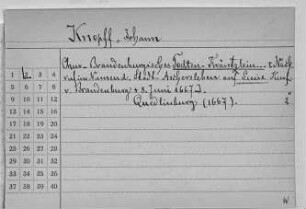 Knopff, Johann
Chur-Brandenburgisches Todten-Kräntzlein .. e. Nach-
ruf im Namend. Stadt Aschersleben auf Luise Kurf.
v. Brandenburg † 8. Juni 1667 J.
Quedlinburg (1667.) 2
1 2 3 4
5 6 7 8
9 10 11 12
13 14 15 16
17 18 19 20
21 22 23 24
25 26 27 28
29 30 31 32
33 34 35 36
37 38 39 40
W